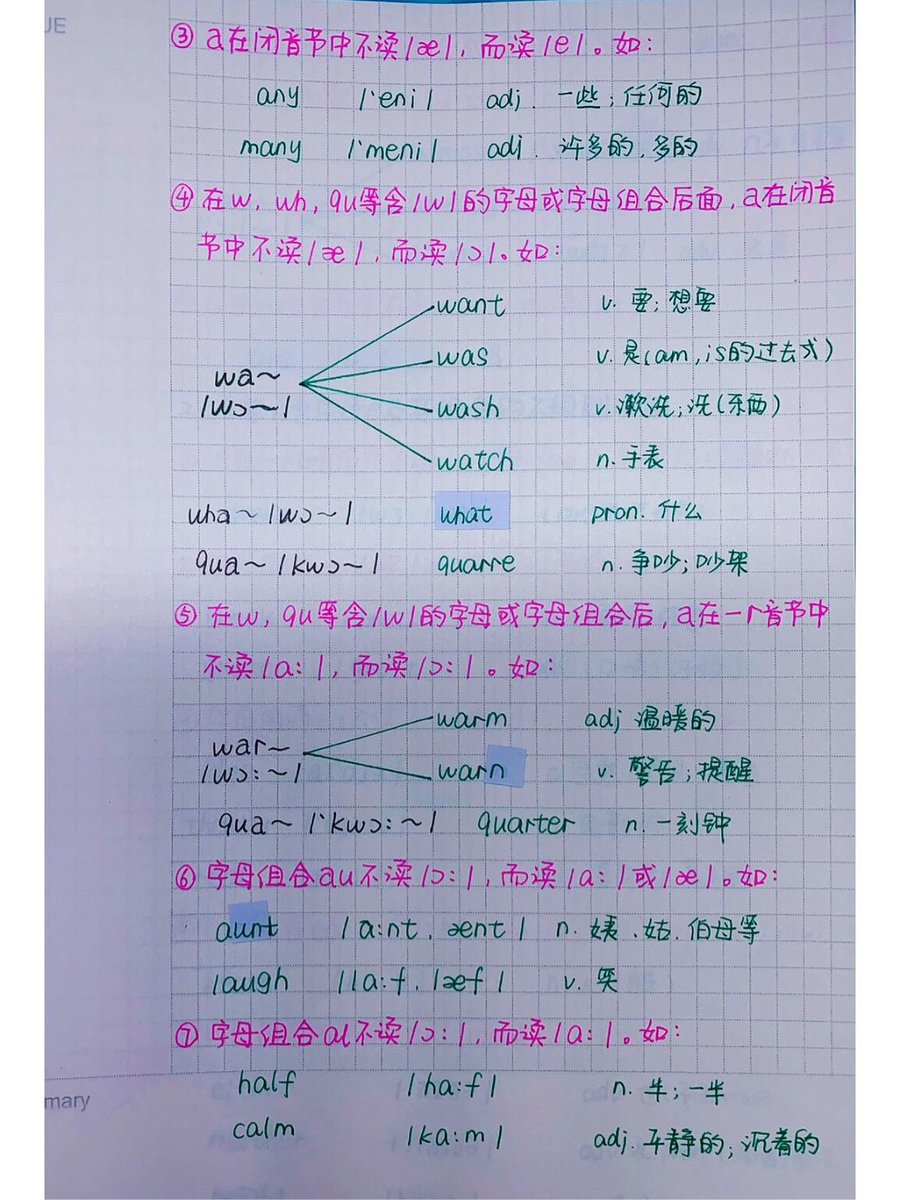 UE
③ a在闭音节中不读/æ/,而读/e/。如:
any /ˋeni/ adj. 一些;任何的
many /ˋmeni/ adj. 许多的,多的
④ 在w, wh, qu等含/w/的字母或字母组合后面,a在闭音
节中不读/æ/,而读/ɔ/。如:
want v. 要;想要
was v. 是(am,is的过去式)
wa~
/wɔ~/
wash v. 漱洗;洗(东西)
watch n. 手表
wha~/wɔ~/ what pron. 什么
qua~/kwɔ~/ quarre n. 争吵;吵架
⑤ 在w, qu等含/w/的字母或字母组合后,a在一r音节中
不读/a:/,而读/ɔ:/。如:
warm adj 温暖的
war~
/wɔ:~/
warn v. 警告;提醒
qua~/ˋkwɔ:~/ quarter n. 一刻钟
⑥ 字母组合au不读/ɔ:/,而读/a:/或/æ/。如:
aunt /a:nt, ænt/ n. 姨、姑、伯母等
laugh /la:f, læf/ v. 笑
⑦ 字母组合al不读/ɔ:/,而读/a:/。如:
half /ha:f/ n. 半;一半
mary
calm /ka:m/ adj. 平静的;沉着的